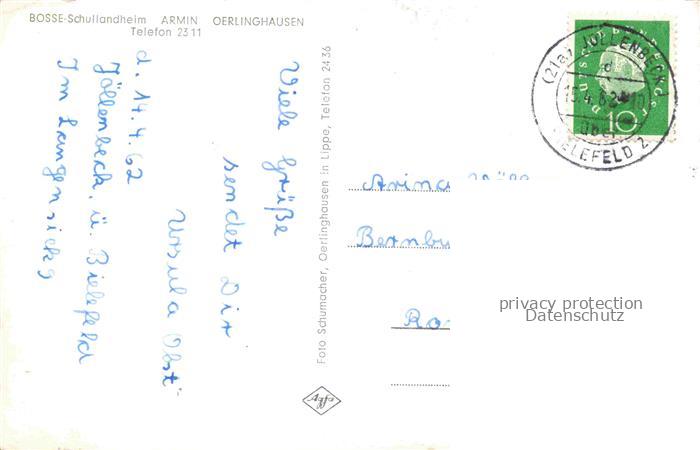 BOSSE-Schullandheim ARMIN OERLINGHAUSEN
Telefon 2311
Viele Grüße
sendet Dir
Ursula Obst
d. 14.4.62
Jöllenbeck, ü. Bielefeld
Im Langensiek 9
Foto Schumacher, Oerlinghausen in Lippe, Telefon 2436
Agfa
(21a) JÖLLENBECK
d
über
BIELEFELD 2
DEUTSCHE BUNDESPOST
10
Arina
Bernbu
Ra
privacy protection
Datenschutz